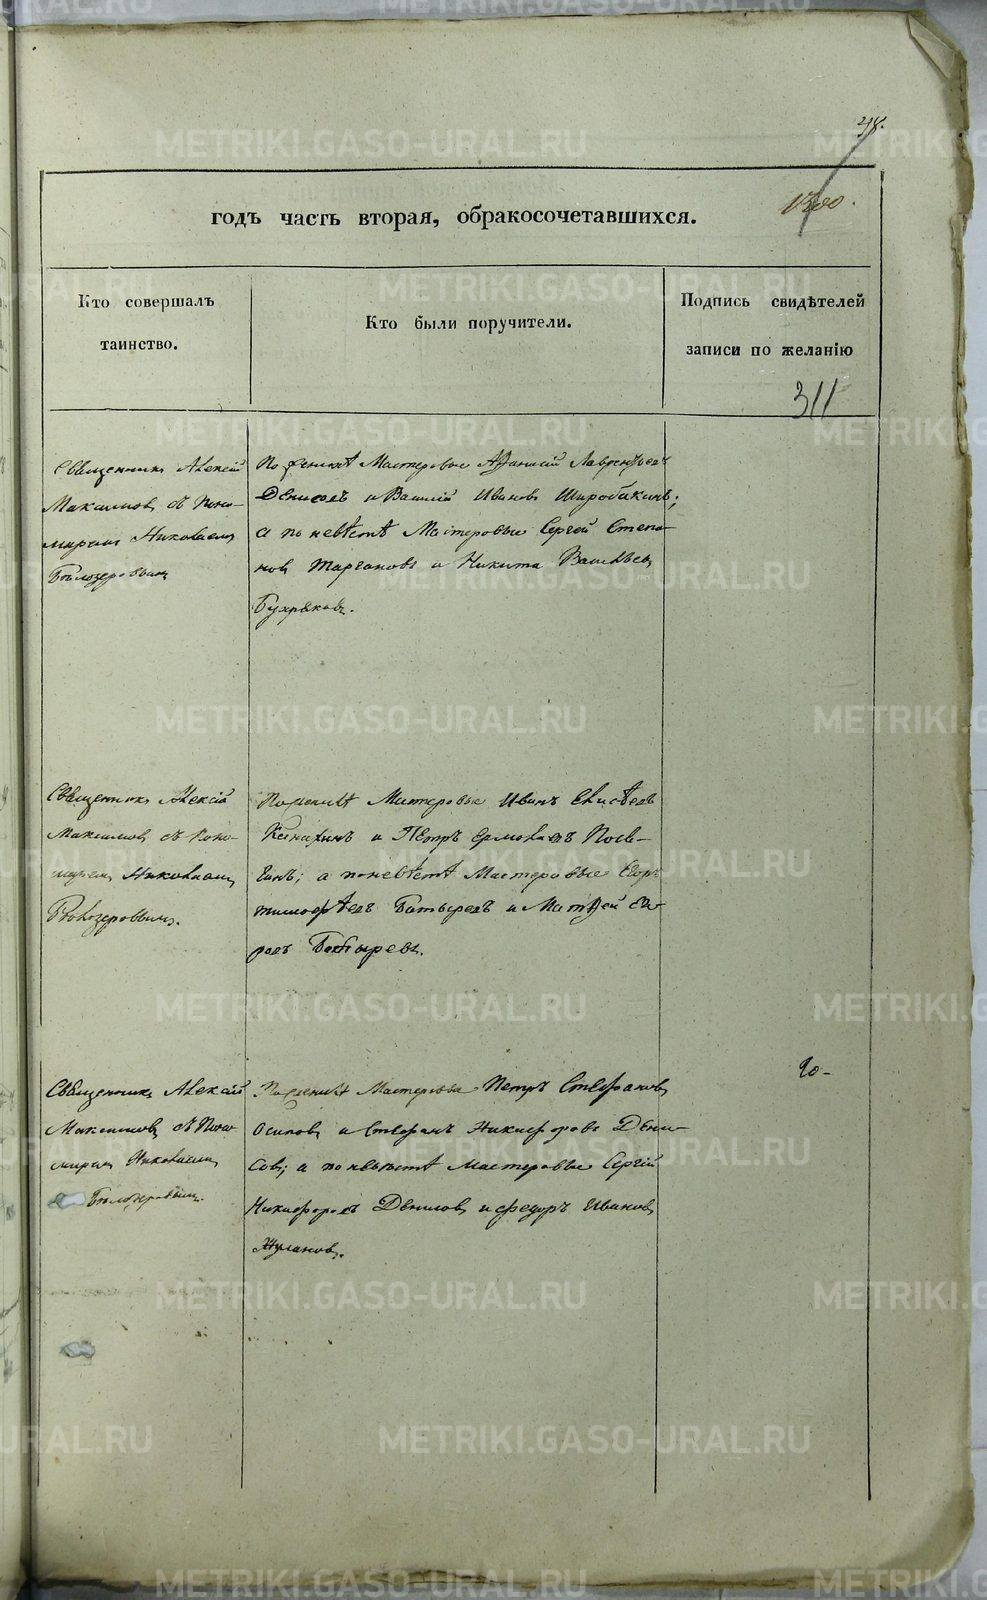 318.
годъ часть вторая, обракосочетавшихся.
1300.
Кто совершалъ
таинство.
Кто были поручители.
Подпись свидѣтелей
записи по желанію
311
Священникъ Алексій
Максимовъ съ Поно-
маремъ Николаемъ
Бѣлозеровымъ
По женихѣ Мастеровые Афанасій Лаврентьевъ
Денисовъ и Василій Ивановъ Широбакинъ;
а по невѣстѣ Мастеровые Сергѣй Степа-
новъ Таргановъ и Никита Васильевъ
Бухряковъ.
Священникъ Алексій
Максимовъ съ Поно-
маремъ Николаемъ
Бѣлозеровымъ.
По женихѣ Мастеровые Иванъ Елисѣевъ
и Петръ Ермолаевъ
а по невѣстѣ Мастеровые Егоръ
Тимофѣевъ Батыревъ и Матвей
Батыревъ.
Священникъ Алексій
Максимовъ съ Поно-
маремъ Николаемъ
Бѣлозеровымъ.
20-
По женихѣ Мастеровые Петръ Стефановъ
Осиповъ и Стефанъ Никифоровъ Дени-
совъ; а по невѣстѣ Мастеровые Сергій
Никифоровъ Денисовъ и Федоръ Ивановъ
Жулановъ.
METRIKI.GASO-URAL.RU